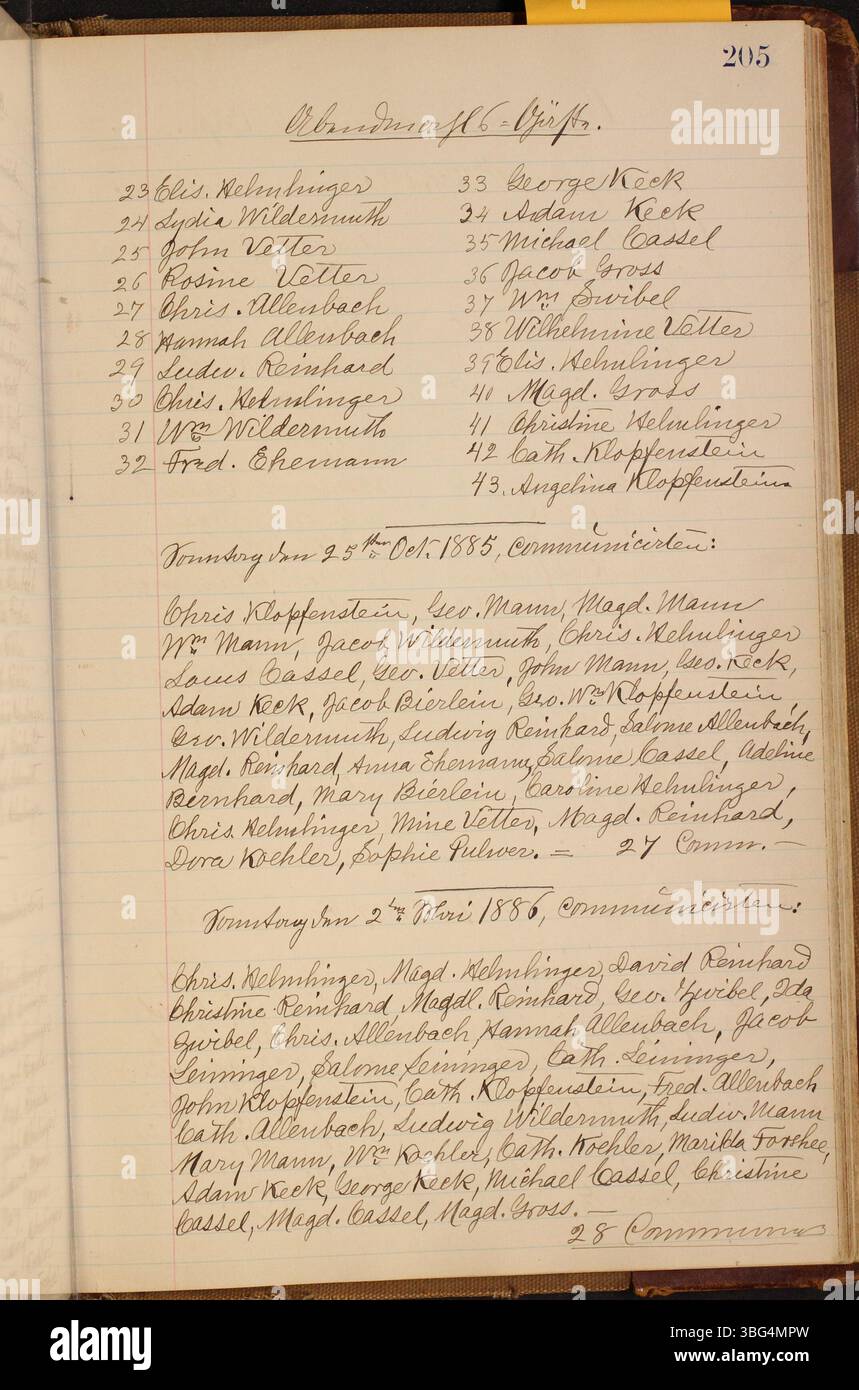 205
Abendmahls=Gäste.
23 Elis. Helmlinger
24 Lydia Wildermuth
25 John Vetter
26 Rosine Vetter
27 Chris. Allenbach
28 Hannah Allenbach
29 Ludw. Reinhard
30 Chris. Helmlinger
31 Wm Wildermuth
32 Fred. Ehemann
33 George Keck
34 Adam Keck
35 Michael Cassel
36 Jacob Gross
37 Wm Zwibel
38 Wilhelmine Vetter
39 Elis. Helmlinger
40 Magd. Gross
41 Christine Helmlinger
42 Cath. Klopfenstein
43. Angelina Klopfenstein
Sonntag den 25ten Oct. 1885, Communicirten:
Chris Klopfenstein, Geo. Mann, Magd. Mann
Wm Mann, Jacob Wildermuth, Chris. Helmlinger
Louis Cassel, Geo. Vetter, John Mann, Geo. Keck,
Adam Keck, Jacob Bierlein, Geo. Wm Klopfenstein
Geo. Wildermuth, Ludwig Reinhard, Salome Allenbach,
Magd. Reinhard, Anna Ehemann, Salome Cassel, Adeline
Bernhard, Mary Bierlein, Caroline Helmlinger,
Chris. Helmlinger, Mine Vetter, Magd. Reinhard,
Dora Koehler, Sophie Pulver. = 27 Comm. —
Sonntag den 2ten 1886, Communicirten:
Chris. Helmlinger, Magd. Helmlinger, David Reinhard
Christine Reinhard, Magdl. Reinhard, Geo. Zwibel, Ida
Zwibel, Chris. Allenbach, Hannah Allenbach, Jacob
Leininger, Salome Leininger, Cath. Leininger,
John Klopfenstein, Cath. Klopfenstein, Fred. Allenbach
Cath. Allenbach, Ludwig Wildermuth, Ludw. Mann
Mary Mann, Wm Koehler, Cath. Koehler, Marilda Forshee,
Adam Keck, George Keck, Michael Cassel, Christine
Cassel, Magd. Cassel, Magd. Gross. —
28
alamy
Image ID: 3BG4MPW
www.alamy.com